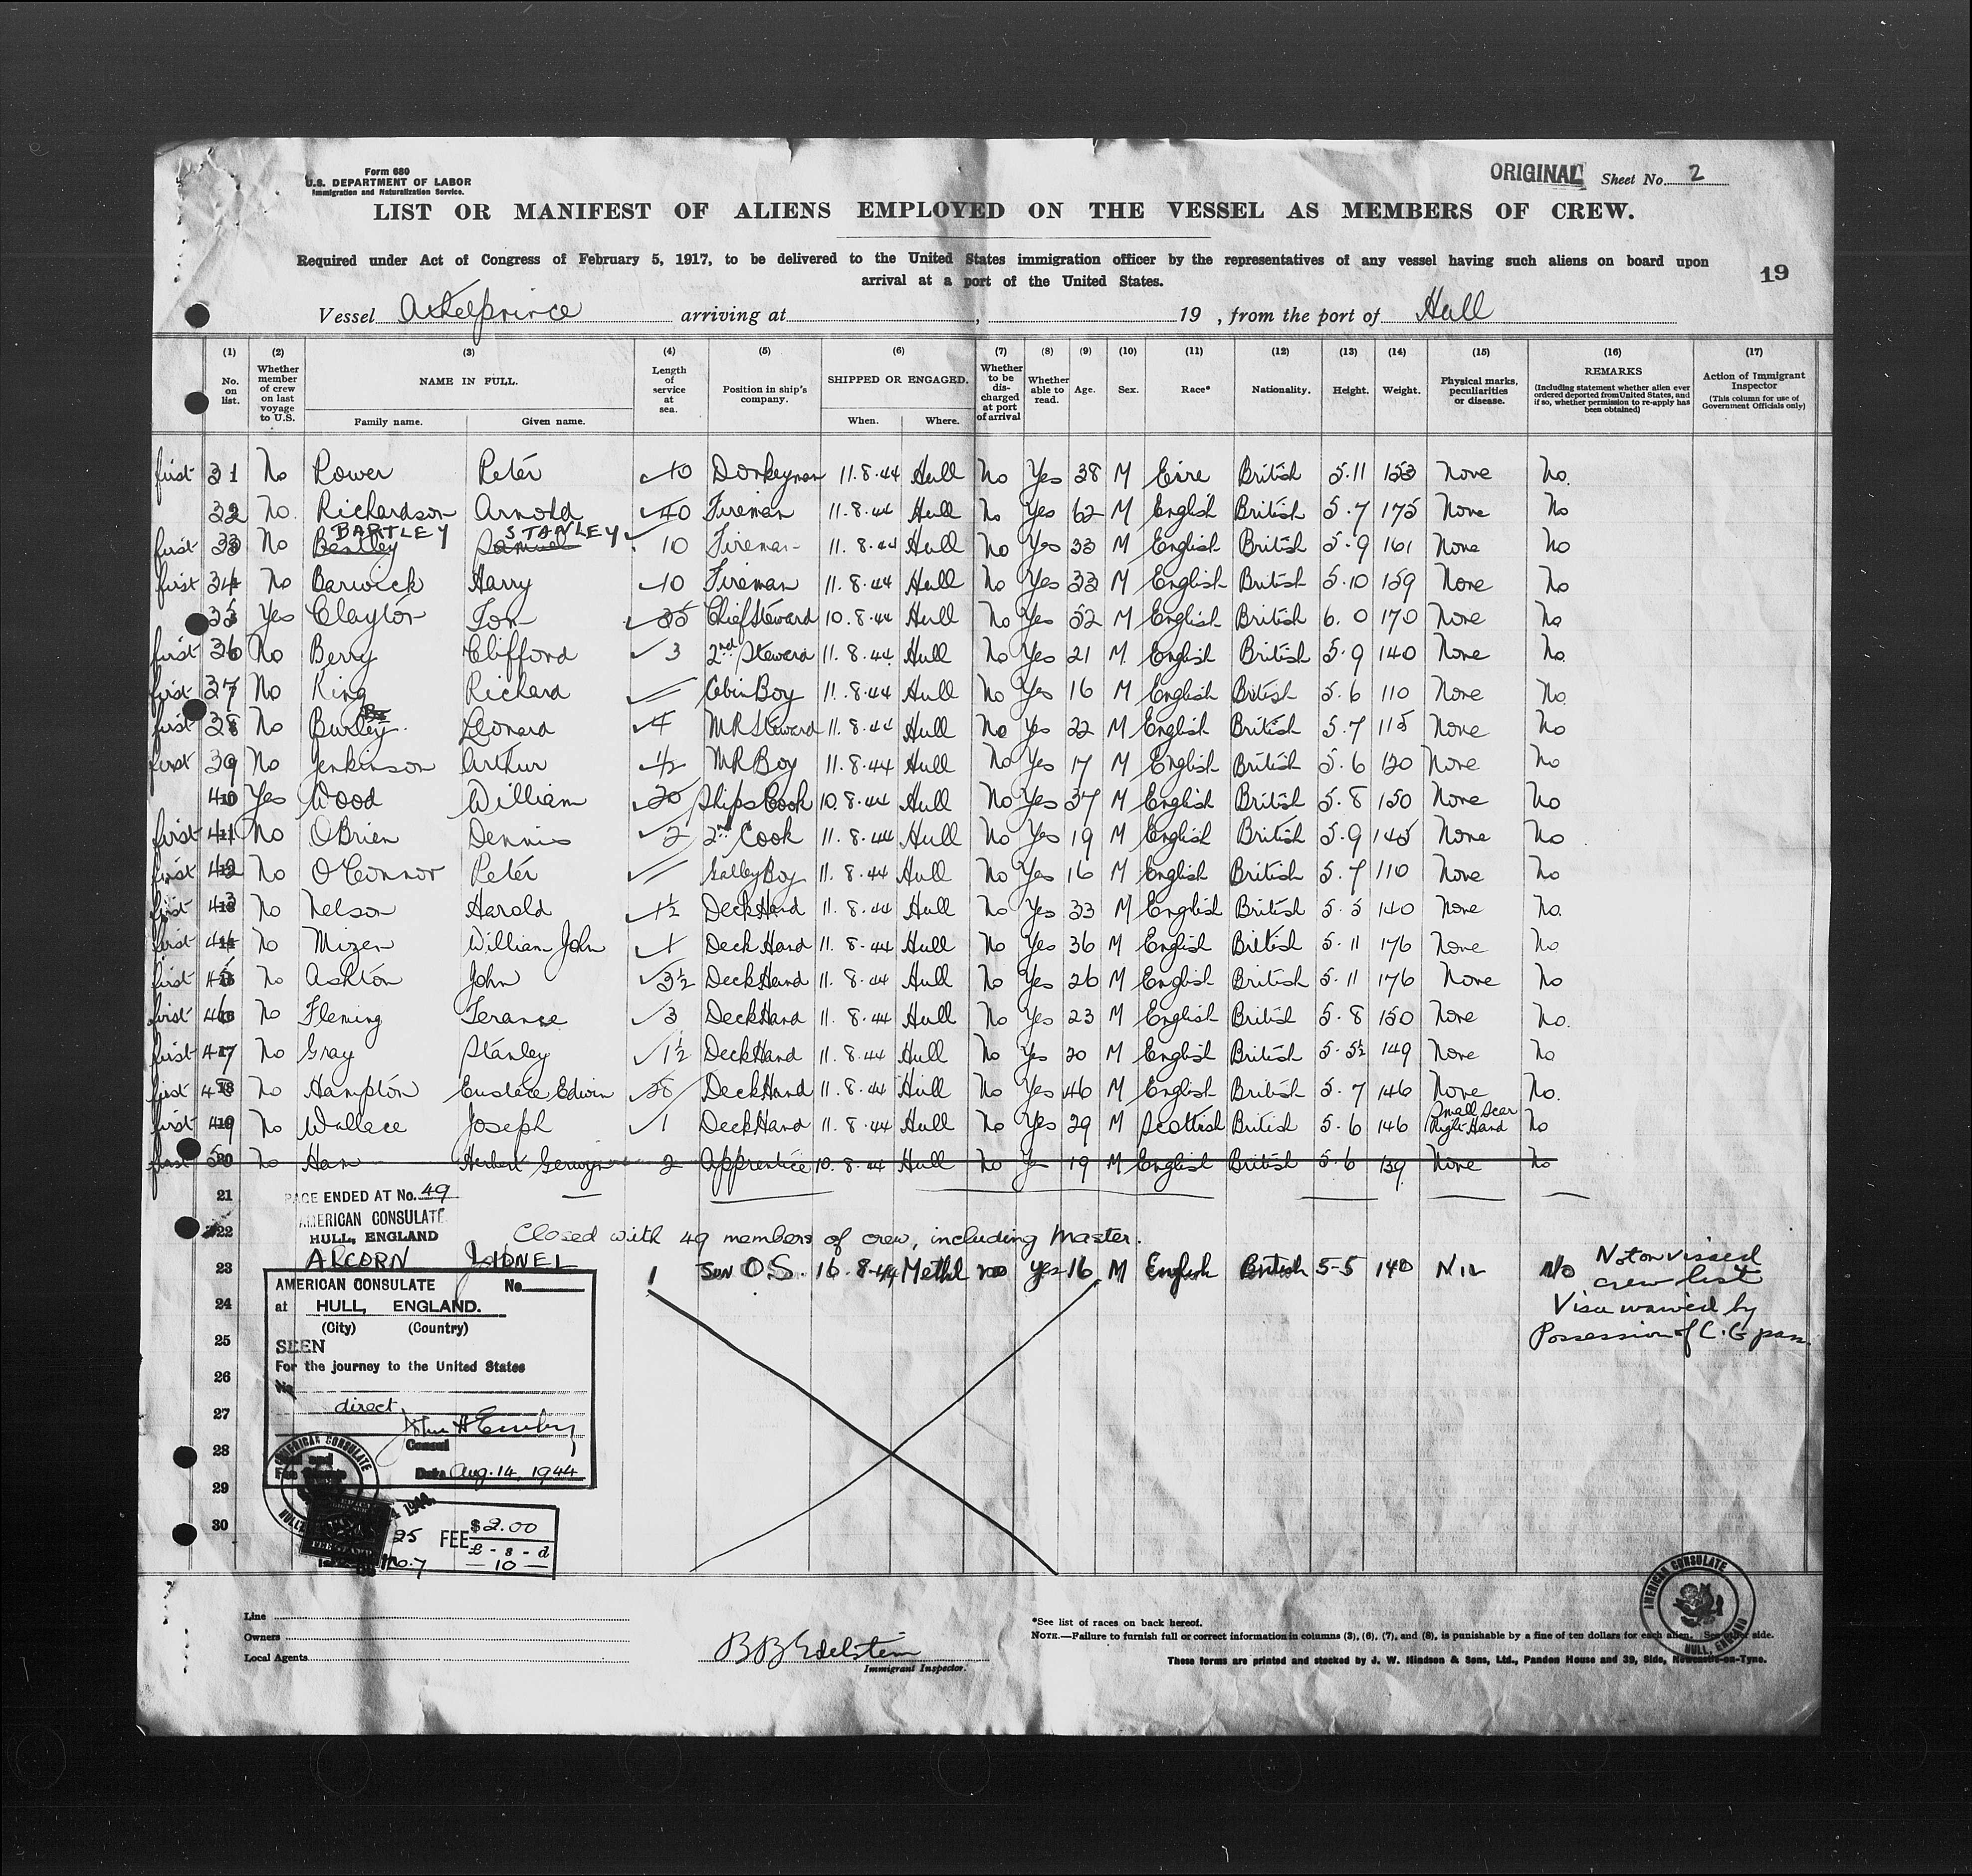 Form 680
U.S. DEPARTMENT OF LABOR
Immigration and Naturalization Service.
ORIGINAL Sheet No. 2
LIST OR MANIFEST OF ALIENS EMPLOYED ON THE VESSEL AS MEMBERS OF CREW.
Required under Act of Congress of February 5, 1917, to be delivered to the United States immigration officer by the representatives of any vessel having such aliens on board upon
arrival at a port of the United States.
19
Vessel Athelprince arriving at , 19 , from the port of Hull
(1) (2) (3) (4) (5) (6) (7) (8) (9) (10) (11) (12) (13) (14) (15) (16) (17)
No. on list.
Whether member of crew on last voyage to U.S.
NAME IN FULL.
Family name. Given name.
Length of service at sea.
Position in ship's company.
SHIPPED OR ENGAGED.
When. Where.
Whether to be discharged at port of arrival
Whether able to read.
Age.
Sex.
Race*
Nationality.
Height.
Weight.
Physical marks, peculiarities or disease.
REMARKS
(Including statement whether alien ever ordered deported from United States, and if so, whether permission to re-apply has been obtained)
Action of Immigrant Inspector
(This column for use of Government Officials only)
first 31 No Power Peter 10 Donkeyman 11.8.44 Hull No Yes 38 M Eire British 5.11 153 None No.
32 No. Richardson Arnold 40 Fireman 11.8.44 Hull No Yes 62 M English British 5.7 175 None No
BARTLEY STANLEY
first 33 No Bentley Samuel 10 Fireman 11.8.44 Hull No Yes 33 M English British 5.9 161 None No
first 34 No Barwick Harry 10 Fireman 11.8.44 Hull No Yes 33 M English British 5.10 159 None No
35 Yes Clayton Tom 35 Chief Steward 10.8.44 Hull No Yes 52 M English British 6.0 170 None No
first 36 No Berry Clifford 3 2nd Steward 11.8.44 Hull No Yes 21 M English British 5.9 140 None No
first 37 No King Richard Cabin Boy 11.8.44 Hull No Yes 16 M English British 5.6 110 None No
first 38 No Burley Leonard 4 M R Steward 11.8.44 Hull No Yes 22 M English British 5.7 115 None No
first 39 No Jenkinson Arthur 1/2 M R Boy 11.8.44 Hull No Yes 17 M English British 5.6 120 None No
40 Yes Wood William 20 Ships Cook 10.8.44 Hull No Yes 37 M English British 5.8 150 None No
first 41 No O'Brien Dennis 2 2nd Cook 11.8.44 Hull No Yes 19 M English British 5.9 145 None No
first 42 No O'Connor Peter Galley Boy 11.8.44 Hull No Yes 16 M English British 5.7 110 None No
first 43 No Nelson Harold 1½ Deck Hand 11.8.44 Hull No Yes 33 M English British 5.5 140 None No.
first 44 No Mizen William John 1 Deck Hand 11.8.44 Hull No Yes 36 M English British 5.11 176 None No
first 45 No Ashton John 3½ Deck Hand 11.8.44 Hull No Yes 26 M English British 5.11 176 None No
first 46 No Fleming Terance 3 Deck Hand 11.8.44 Hull No Yes 23 M English British 5.8 150 None No.
first 47 No Gray Stanley 1½ Deck Hand 11.8.44 Hull No Yes 20 M English British 5.5½ 149 None No
first 48 No Hampton Eustace Edwin 28 Deck Hand 11.8.44 Hull No Yes 46 M English British 5.7 146 None No.
first 49 No Wallace Joseph 1 Deck Hand 11.8.44 Hull No Yes 29 M Scottish British 5.6 146 Small Scar Right Hand No
first 50 No Ham Herbert 2 Apprentice 10.8.44 Hull No Yes 19 M English British 5.6 139 None No
21
PAGE ENDED AT No. 49
AMERICAN CONSULATE
HULL, ENGLAND
22
Closed with 49 members of crew, including Master.
23 ALCORN LIONEL 1 O.S. 16.8.44 Methil no yes 16 M English British 5-5 140 NIL No
Not on vissed
crew list
Visa waived by
Possession of C.G pass.
AMERICAN CONSULATE No.
at HULL, ENGLAND.
(City) (Country)
SEEN
For the journey to the United States
Via
direct
Consul
Date Aug. 14, 1944
24
25
26
27
28
29
30
AMERICAN CONSULATE
HULL
FEE $2.00
£ - s - d
— 10 —
Line
Owners
Local Agents
B B Edelstein
Immigrant Inspector.
*See list of races on back hereof.
NOTE.—Failure to furnish full or correct information in columns (3), (6), (7), and (8), is punishable by a fine of ten dollars for each alien. See other side.
These forms are printed and stocked by J. W. Hindson & Sons, Ltd., Pandon House and 39, Side, Newcastle-on-Tyne.
AMERICAN CONSULATE
HULL, ENGLAND